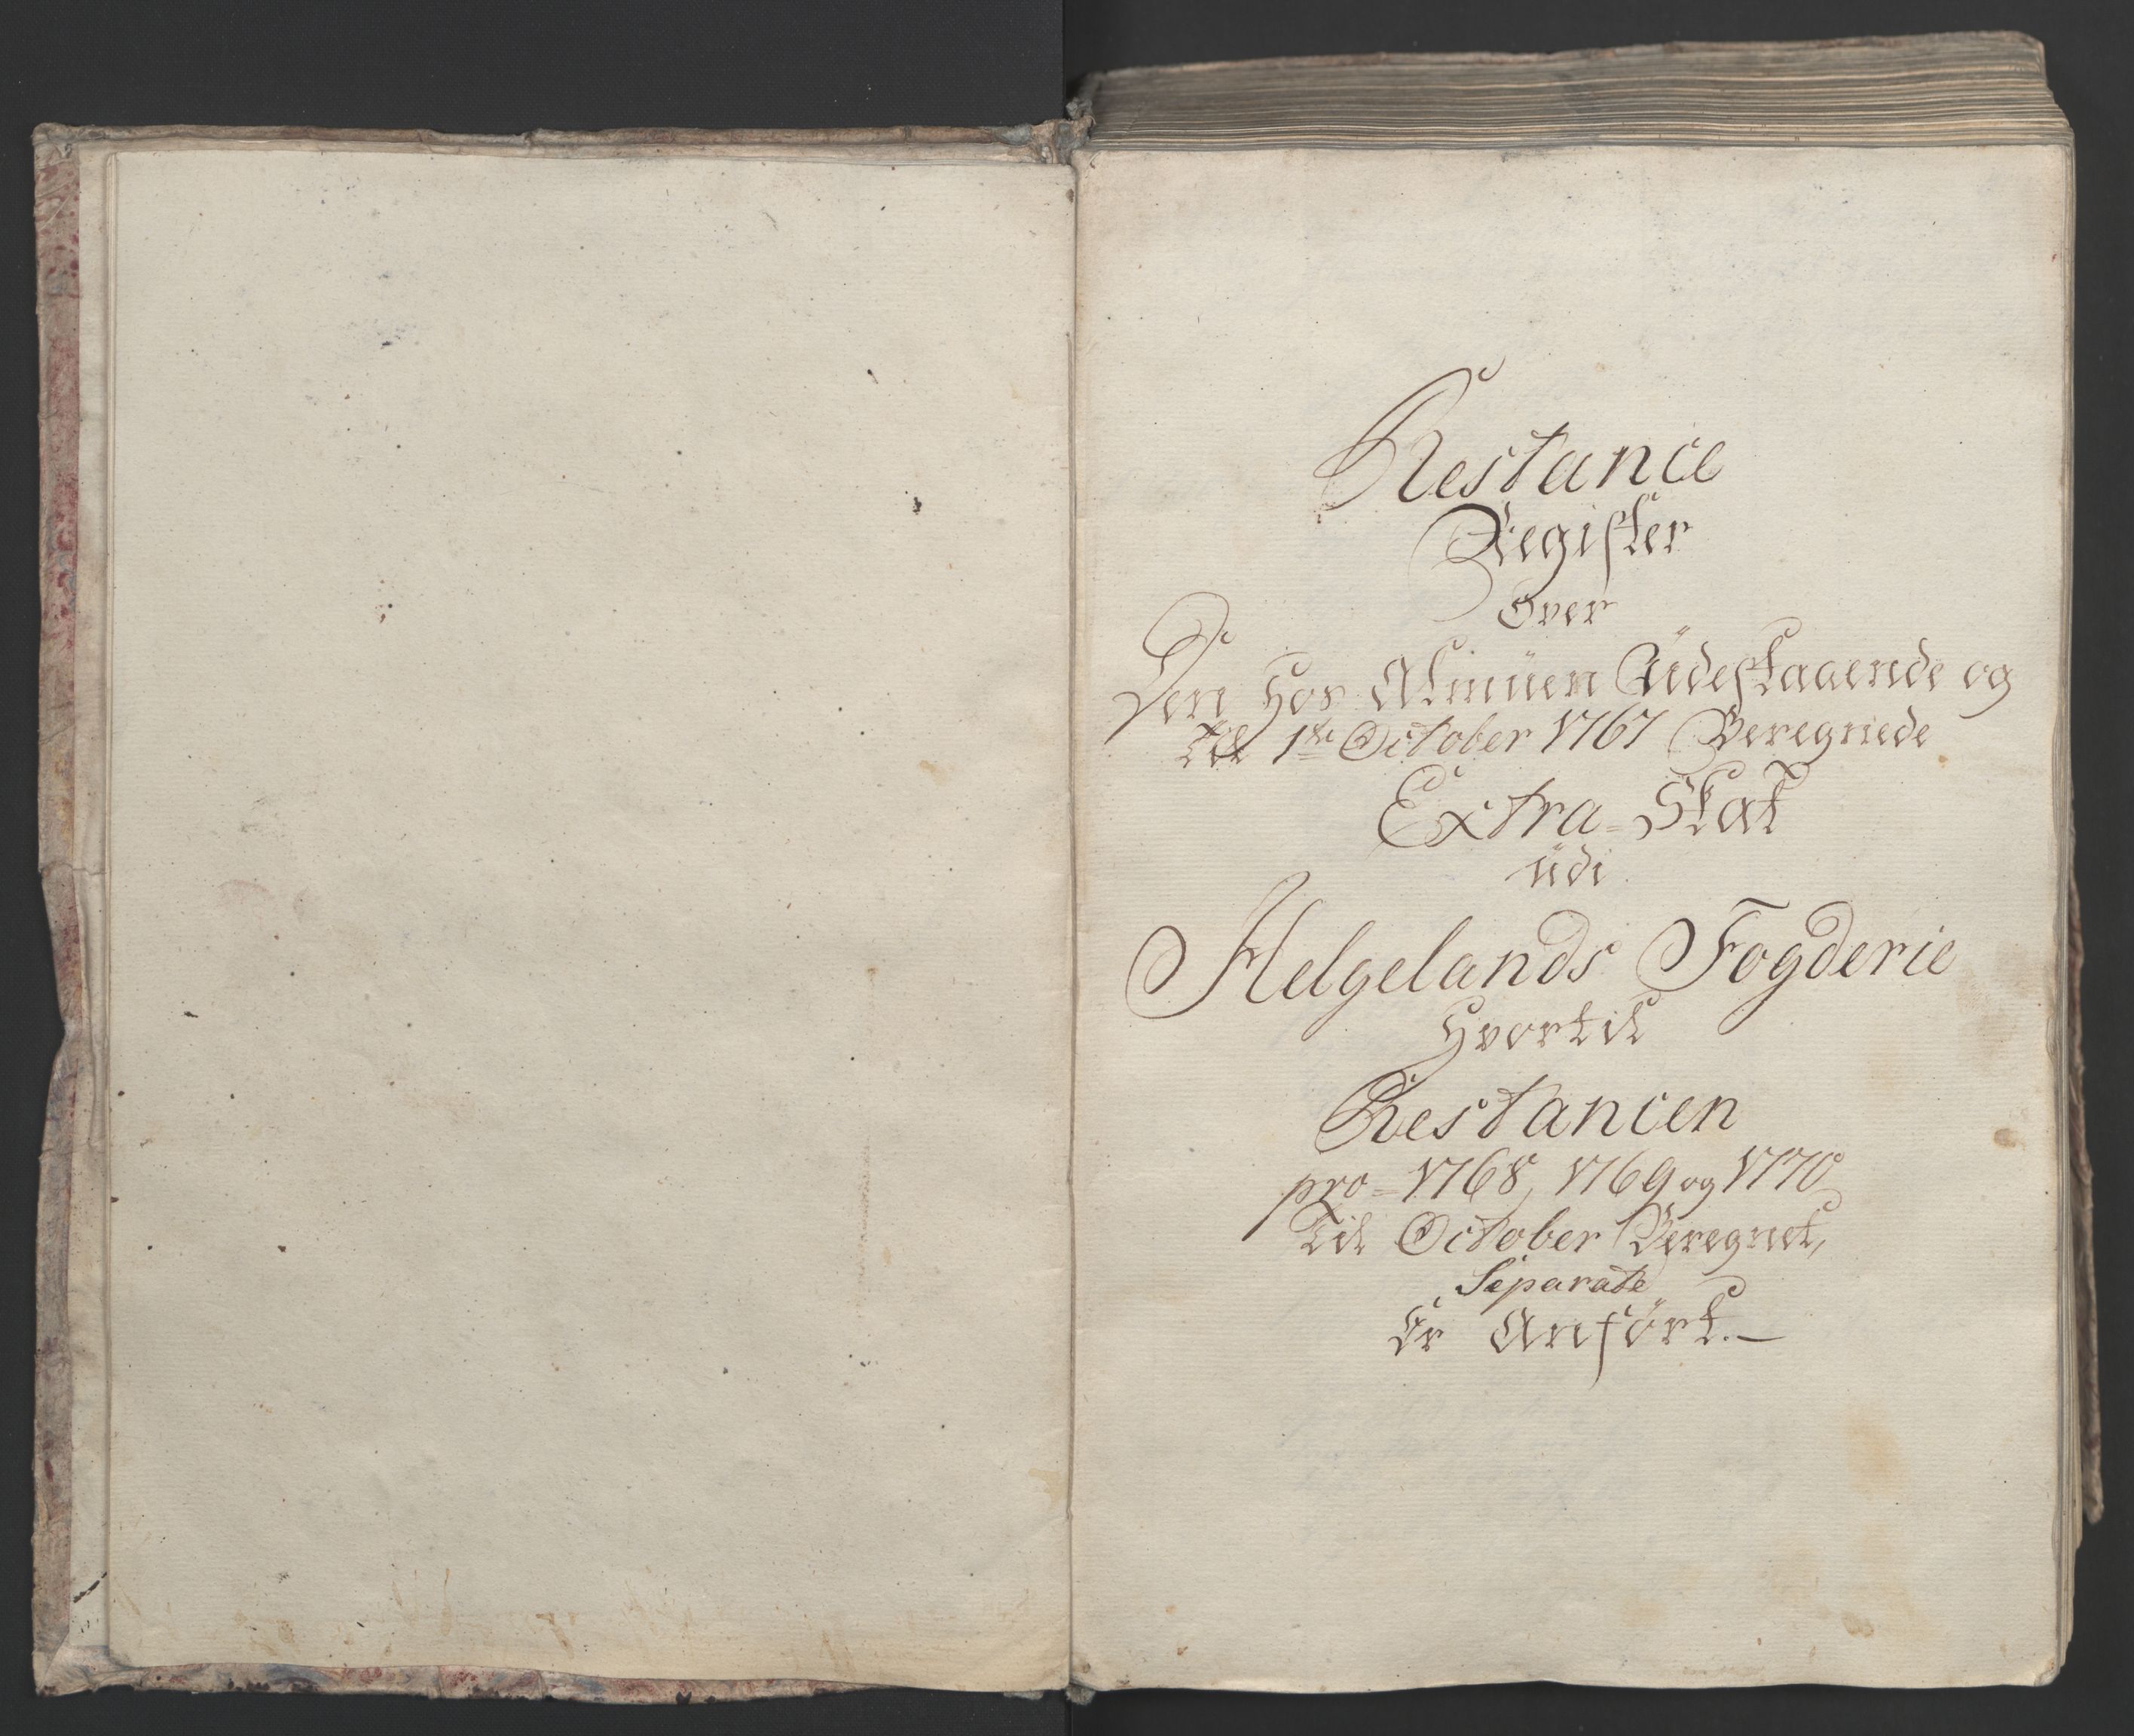 Restance
Register
Over
Den hos Almuen Udestaaende og
til 1ste October 1767 Beregnede
Extra-Skat
udi
Helgelands Fogderie
Hvortil
Restancen
pro= 1768, 1769 og 1770
til October Beregnet,
Separate
Er Anført.—